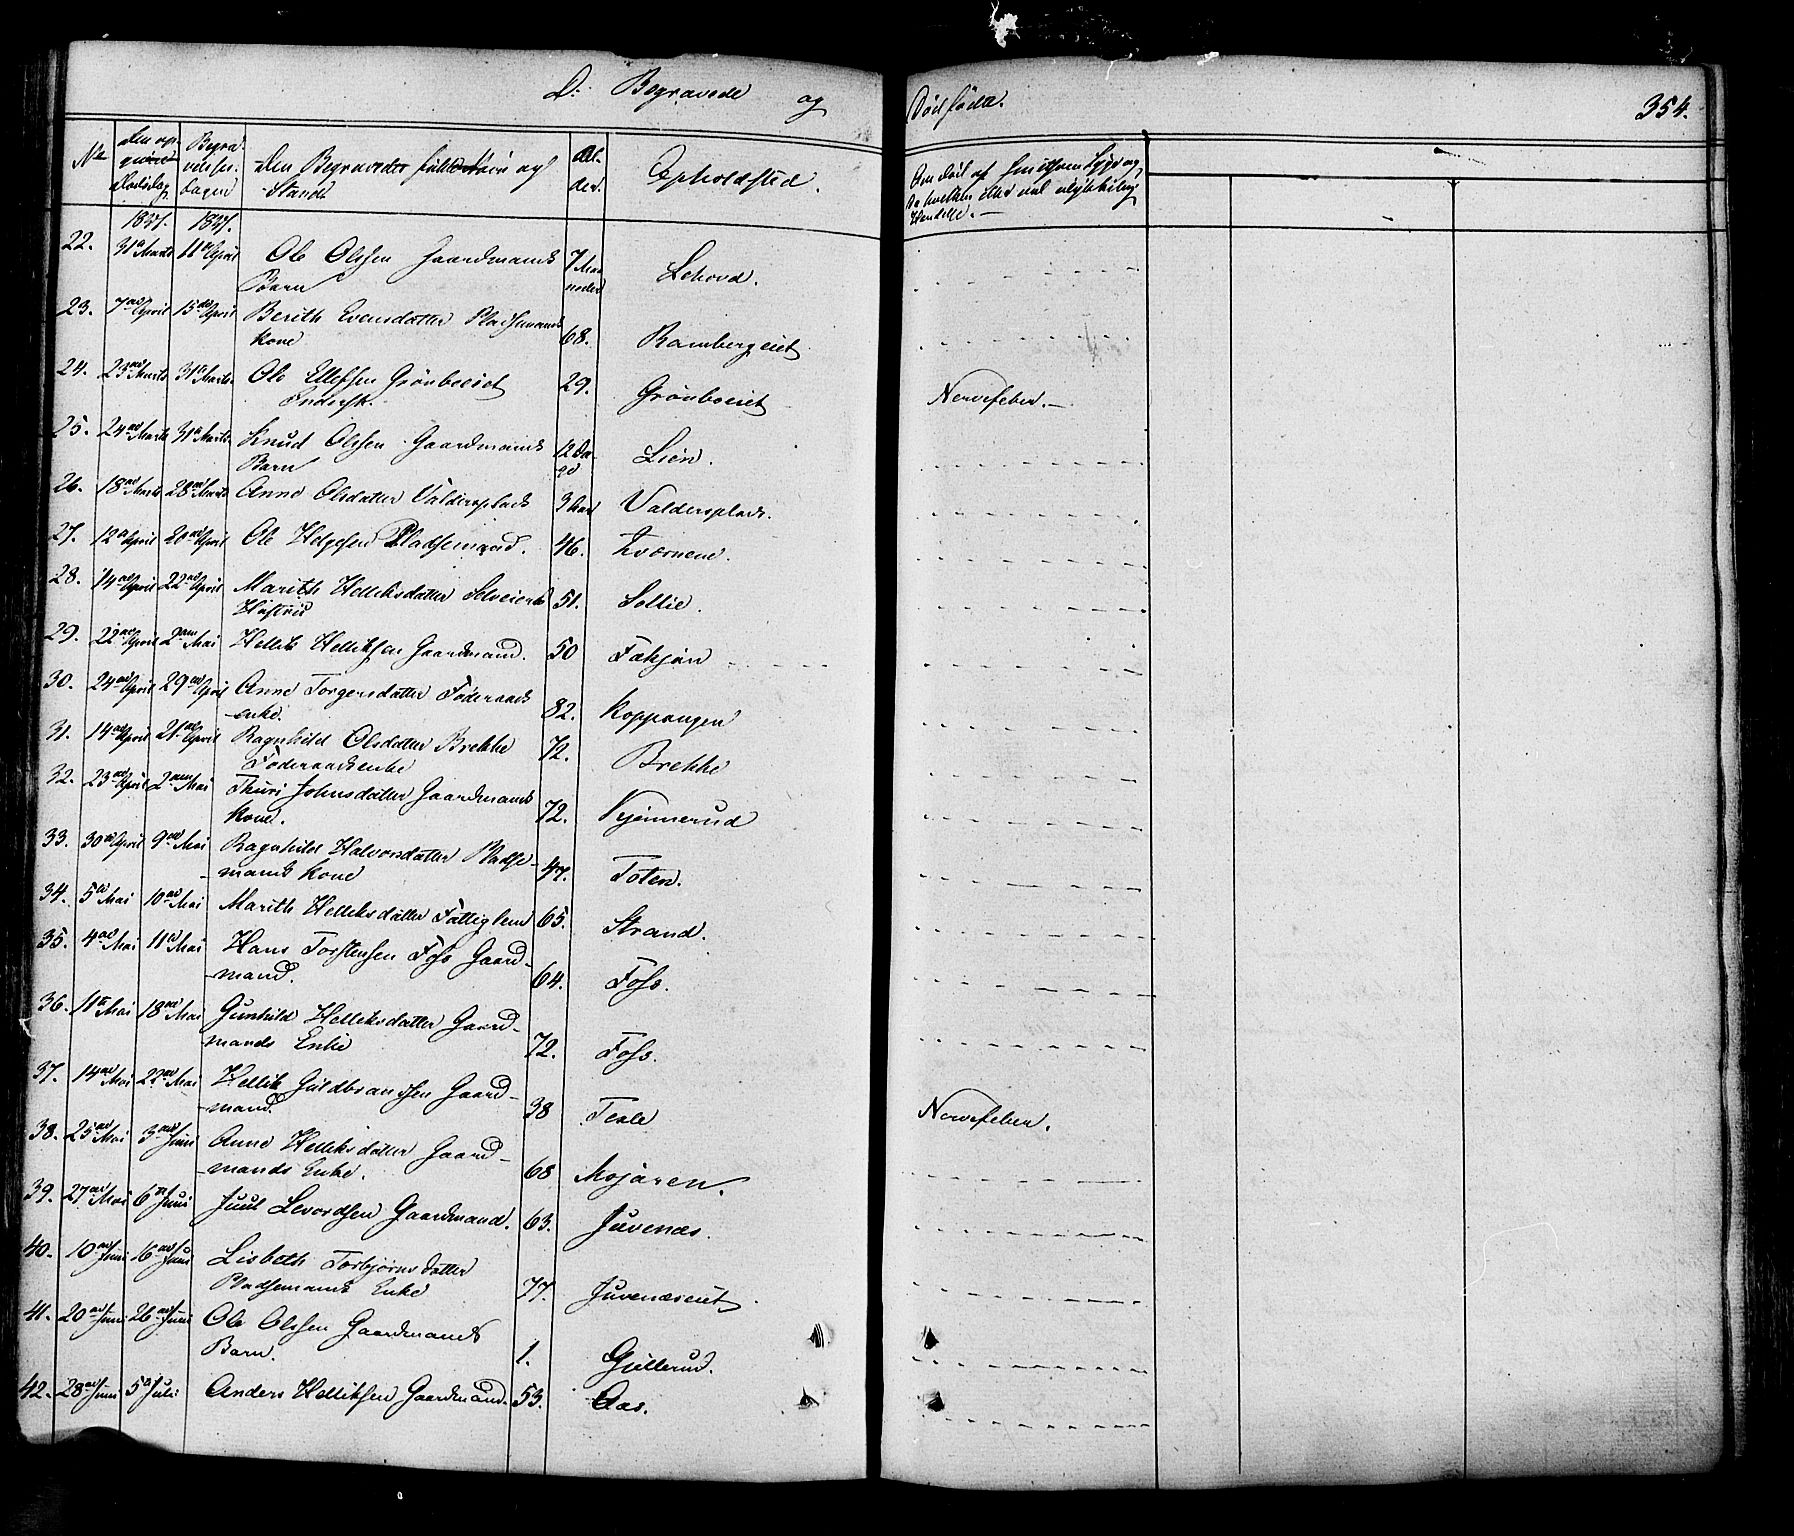 D: Begravede og Dødfødte. 354.
No Den opgivne Dødsdag Begravelsesdagen Den Begravedes fulde Navn og Stand Alder. Opholdsted. Om Død af Smitsom Syge og da hvilken eller ved ulykkelig Hændelse. —
1837. 1837.
22. 31te Marts 11te April Ole Olssen Gaardmands 7 Maa
Barn neder Lehovd.
23. 7de April 15de April Berith Evensdatter Pladsemands
Kone 68. Rambergeiet
24. 23de Marts 31te Marts Ole Ellefsen Grönboeiet 29. Grönboeiet Nervefeber. —
Indersk.
25. 24de Marts 31te Marts Knud Olssen Gaardmands 12 Da
Barn ge Lien.
26. 18de Marts 28de Marts Anne Olsdatter Valdersplads 3 Aar Valdersplads.
27. 12te April 20de April Ole Helgesen Pladsemand. 46. Kværnene.
28. 14de April 22de April Marith Helleksdatter Selveiers 51. Sollie.
Hustrue
29. 22de April 2den Mai Hellik Helliksen Gaardmand. 50
30. 24de April 29de April Anne Torgersdatter Föderaads
enke. 82. Koppangen
31. 14de April 21de April Ragnhild Olsdatter Brekke 72. Brekke
Föderaadsenke
32. 23de April 2den Mai Thuri Johnsdatter Gaardmands
Kone. 72. Kjennerud
33. 30te April 9de Mai Ragnhild Halvorsdatter Pladse-
mands Kone 47. Toten.
34. 5te Mai 10de Mai Marith Helleksdatter Fattiglem 65. Strand.
35. 4de Mai 11te Mai Hans Torstensen Foss Gaard-
mand. 64. Foss.
36. 11te Mai 18de Mai Gunhild Helleksdatter Gaard-
mands Enke 72. Foss.
37. 14de Mai 22de Mai Hellik Guldbrandssen Gaard-
mand. 38 Tesle Nervefeber.
38. 25de Mai 3die Juni Anne Helleksdatter Gaard-
mands Enke. 68 Mojaren.
39. 27de Mai 6te Juni Juul Levordsen Gaardmand. 63. Juvenæs.
40. 10de Juni 16de Juni Lisbeth Torbjörnsdatter
Pladsemands Enke 77. Juvenæseiet.
41. 20de Juni 26de Juni Ole Olssen Gaardmands
Barn. 1. Gullerud.
42. 28de Juni 5te Juli Anders Helliksen Gaardmand. 53. Aas.